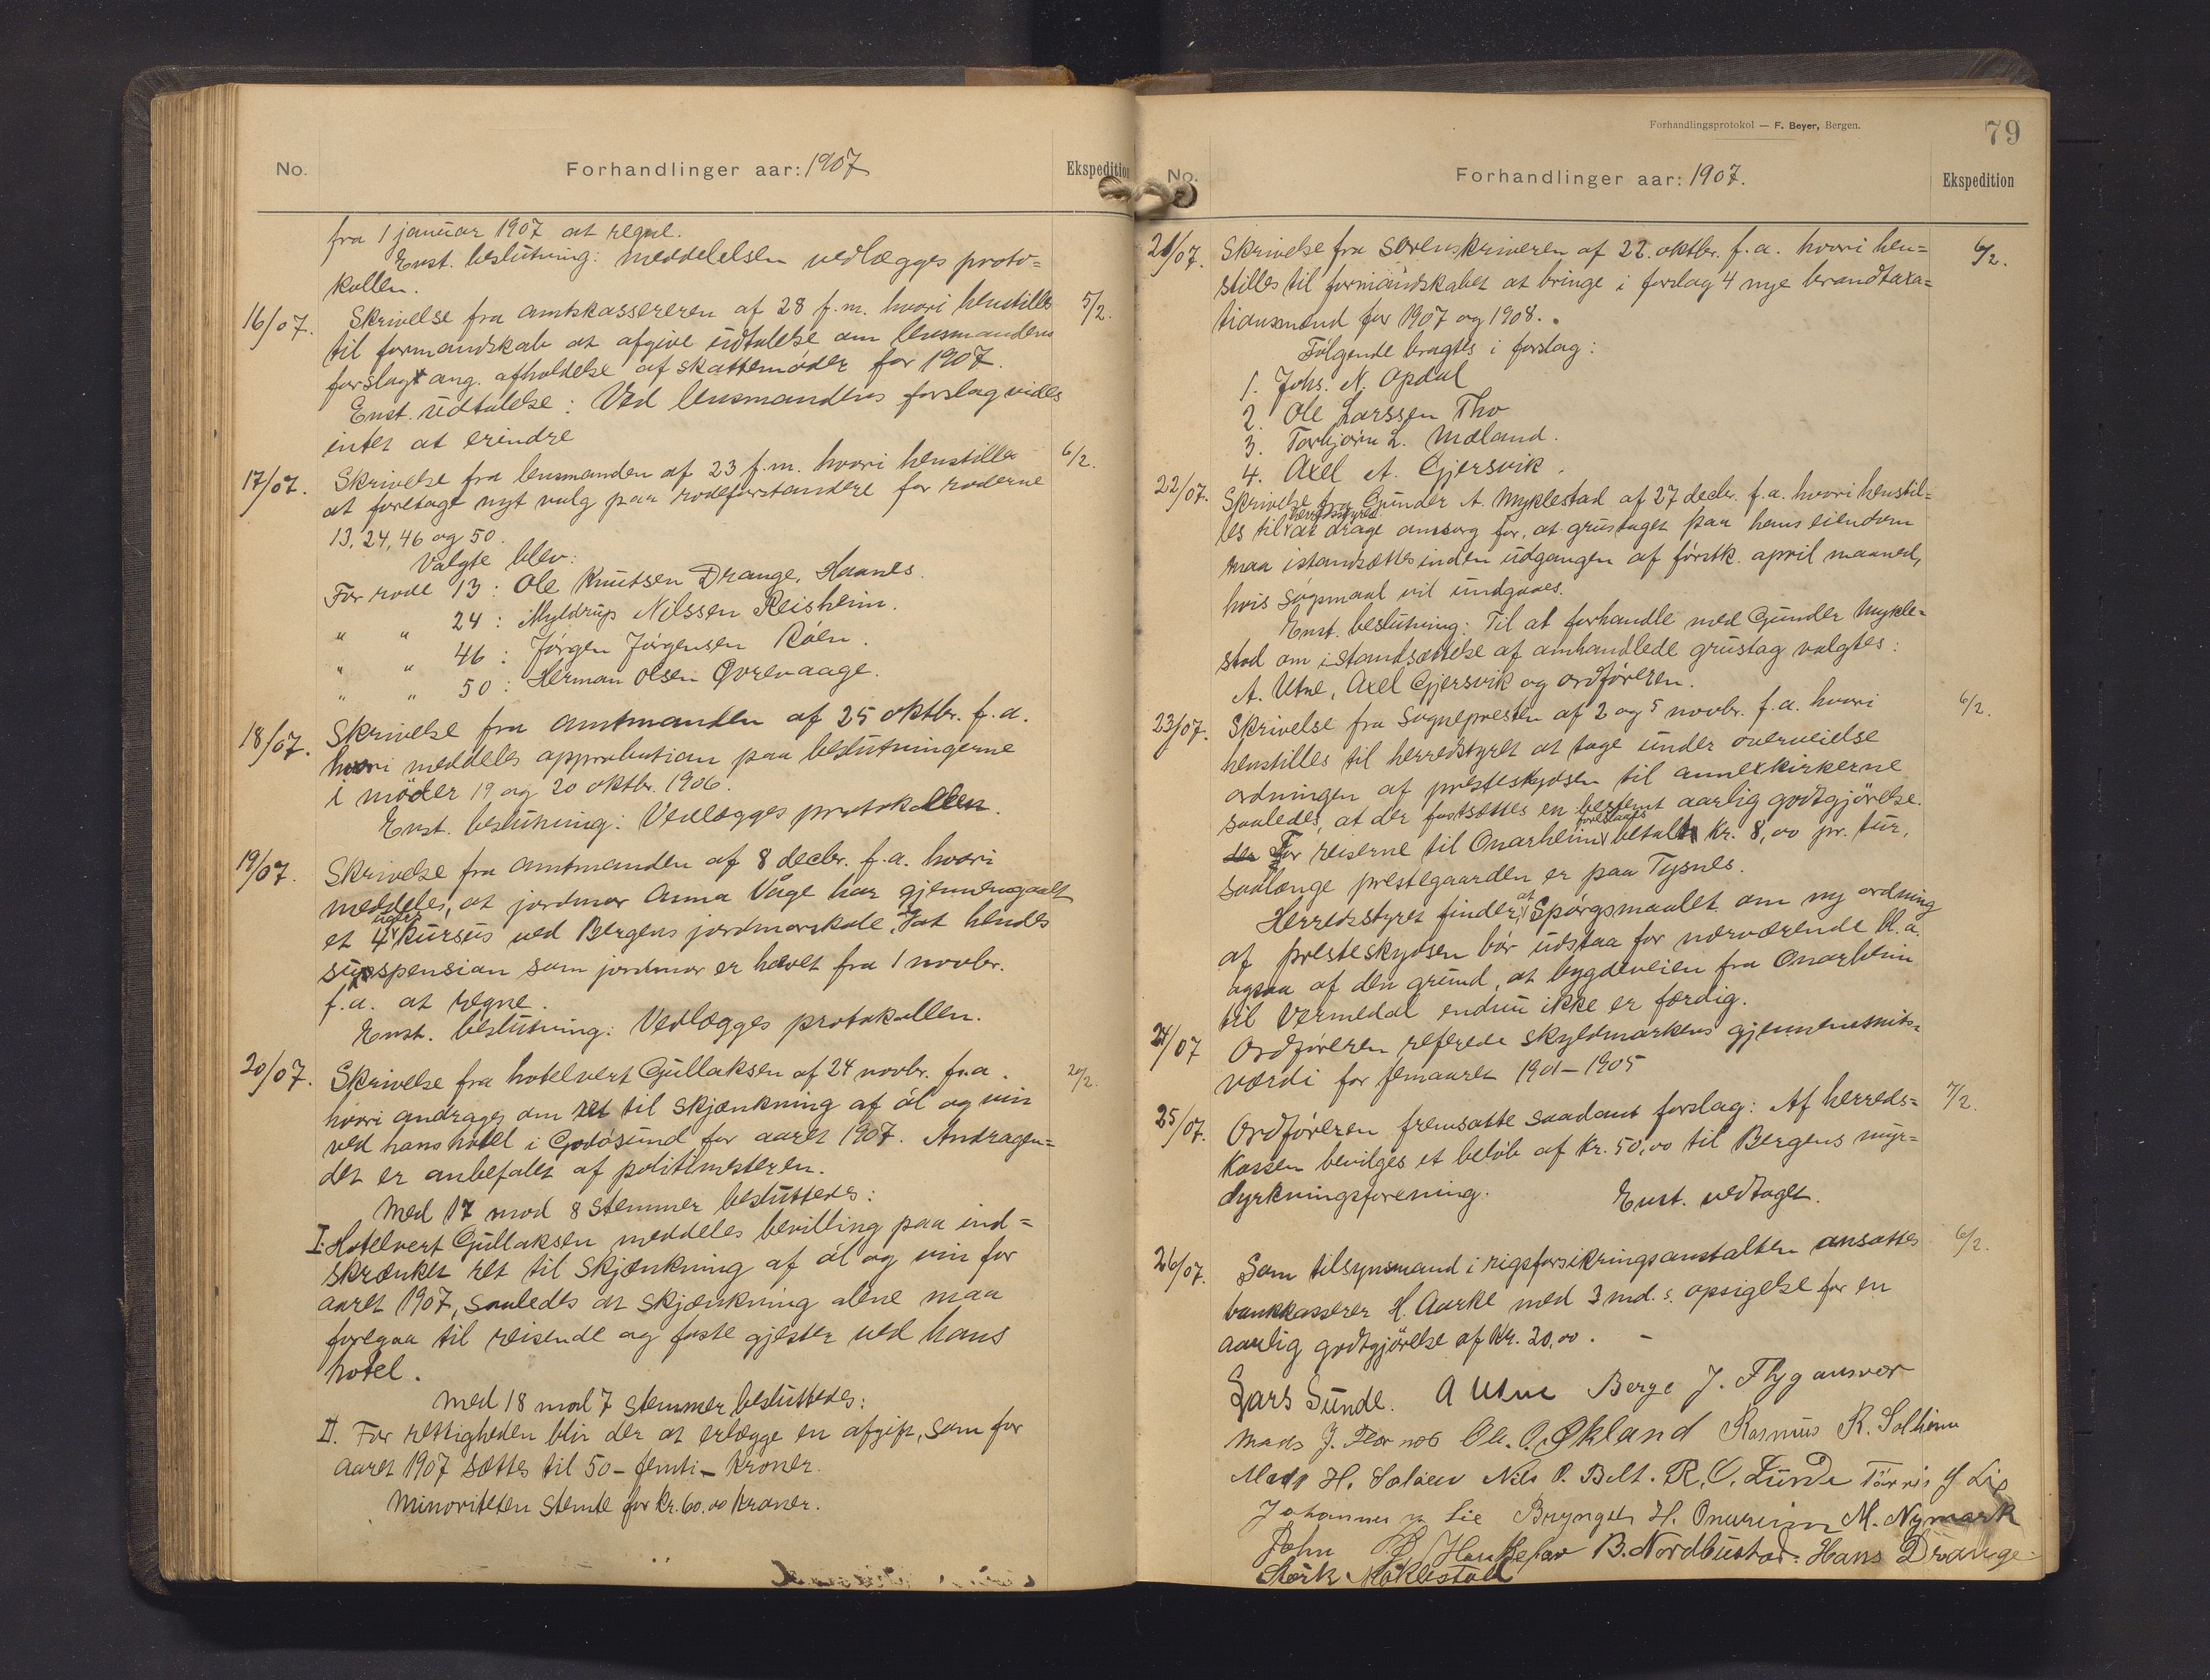 No.
Forhandlinger aar: 1907
Ekspedition
fra 1 januar 1907 at regne.
Enst. beslutning: Meddelelsen vedlægges proto-
kollen.
16/07. Skrivelse fra amtskassereren af 28 f.m. hvori henstilles 5/2.
til formandskab at afgive udtalelse om lensmandens
forslag ang. afholdelse af skattemøder for 1907.
Enst. udtalelse: Ved lensmandens forslag vides
intet at erindre
17/07. Skrivelse fra lensmanden af 23 f.m. hvori henstilles 6/2.
at foretage nyt valg paa rodeforstandere for roderne
13, 24, 46 og 50.
Valgte blev:
For rode 13: Ole Knutsen Drange, Haanes.
" " 24: Myldrup Nilssen Reisheim.
" " 46: Jørgen Jørgensen Røen.
" " 50: Herman Olsen Øvrevaage.
18/07. Skrivelse fra amtmanden af 25 oktbr. f.a.
hvori meddeles approbation paa beslutningerne
i møder 19 og 20 oktbr. 1906.
Enst. beslutning: Vedlægges protokollen.
19/07. Skrivelse fra amtmanden af 8 decbr. f.a. hvori
meddeles, at jordmor Anna Våge har gjennemgaat
et 4 ugers kursus ved Bergens jordmorskole, at hendes
suspension som jordmor er hævet fra 1 novbr.
f.a. at regne.
Enst. beslutning: Vedlægges protokollen.
20/07. Skrivelse fra hotelvert Gullaksen af 24 novbr. f.a. 20/2.
hvori andrages om ret til skjænkning af øl og vin
ved hans hotel i Godøsund for aaret 1907. Andragen-
det er anbefalet af politimesteren.
Med 17 mod 8 stemmer besluttedes:
I. Hotelvert Gullaksen meddeles bevilling paa ind-
skrænket ret til skjænkning af øl og vin for
aaret 1907, saaledes at skjænkning alene maa
foregaa til reisende og faste gjester ved hans
hotel.
Med 18 mod 7 stemmer besluttedes:
II. For rettigheden blir der at erlægge en afgift, som for
aaret 1907 sættes til 50 – femti – kroner.
Minoriteten stemte for kr. 60.00 kroner.
Forhandlingsprotokol — F. Beyer, Bergen.
79
No.
Forhandlinger aar: 1907.
Ekspedition
21/07. Skrivelse fra sorenskriveren af 22. oktbr. f.a. hvori hen- 6/2.
stilles til formandskabet at bringe i forslag 4 nye brandtaxa-
tionsmænd for 1907 og 1908.
Følgende bragtes i forslag:
1. Johs. N. Opdal
2. Ole Larssen Tho
3. Torbjørn L. Mæland.
4. Axel A. Gjersvik.
22/07. Skrivelse fra Gunder A. Myklestad af 27 decbr. f.a. hvori henstil-
les til herredsstyret at drage omsorg for, at grustaget paa hans eiendom
maa istandsættes inden udgangen af førstk. april maaned,
hvis søgsmaal vil undgaaes.
Enst. beslutning: Til at forhandle med Gunder Mykle-
stad om istandsættelse af omhandlede grustag valgtes:
A. Utne, Axel Gjersvik og ordføreren.
23/07. Skrivelse fra sognepresten af 2 og 5 novbr. f.a. hvori 6/2.
henstilles til herredstyret at tage under overveielse
ordningen af presteskydsen til annexkirkerne
saaledes, at der fastsættes en bestemt aarlig godtgjørelse.
der For reiserne til Onarheim foreslaaes betalt kr. 8,00 pr. tur,
saalænge prestegaarden er paa Tysnes.
Herredsstyret finder, at spørgsmaalet om ny ordning
af presteskydsen bør udstaa for nærværende bl.a.
ogsaa af den grund, at bygdeveien fra Onarheim
til Vermedal endnu ikke er færdig.
24/07 Ordføreren referede skyldmarkens gjennemsnits-
værdi for femaaret 1901–1905
25/07. Ordføreren fremsatte saadant forslag: Af herreds- 7/2.
kassen bevilges et beløb af kr. 50,00 til Bergens myr-
dyrkningsforening. Enst. vedtaget.
26/07. Som tilsynsmand i rigsforsikringsanstalten ansattes 6/2.
bankkasserer H. Aarke med 3 md.s. opsigelse for en
aarlig godtgjørelse af kr. 20,00. –
Lars Sunde. A Utne Berge J. Flygansvær
Mads J. Flornes Ole. O. Økland Rasmus R. Solheim
Mads H. Nils O. Belt. R. O. Lunde Tørris J Lie
Johannes Lie Brynjel H. Onarheim M. Nymark
John B. Nordbustad. Hans Drange
Størk Møklestad